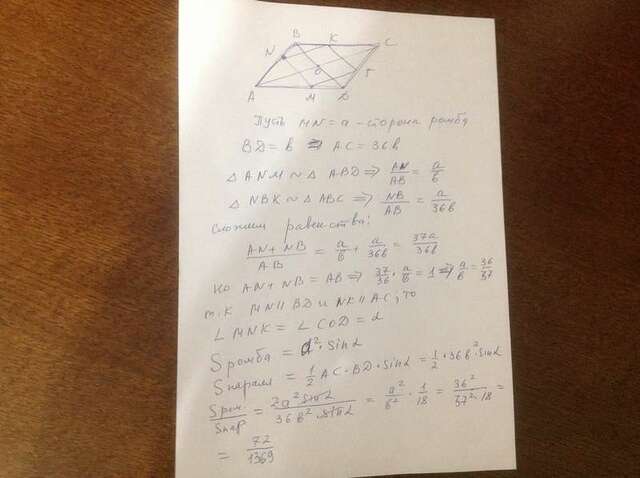 B K C
N
O T
A M D
Пусть MN = a - сторона ромба
BD = b ⇒ AC = 36b
△ ANM ~ △ ABD ⇒ AN/AB = a/b
△ NBK ~ △ ABC ⇒ NB/AB = a/36b
Сложим равенства:
AN + NB/AB = a/b + a/36b = 37a/36b
Но AN + NB = AB ⇒ 37/36 · a/b = 1 ⇒ a/b = 36/37
т.к MN || BD и NK || AC, то
∠ MNK = ∠ COD = α
Sромба = a² · sinα
Sпарал = 1/2 AC · BD · sinα = 1/2 · 36b² sinα
Sром/Sпар = 2a² sinα/36b² · sinα = a²/b² · 1/18 = 36²/37² · 18 =
= 72/1369